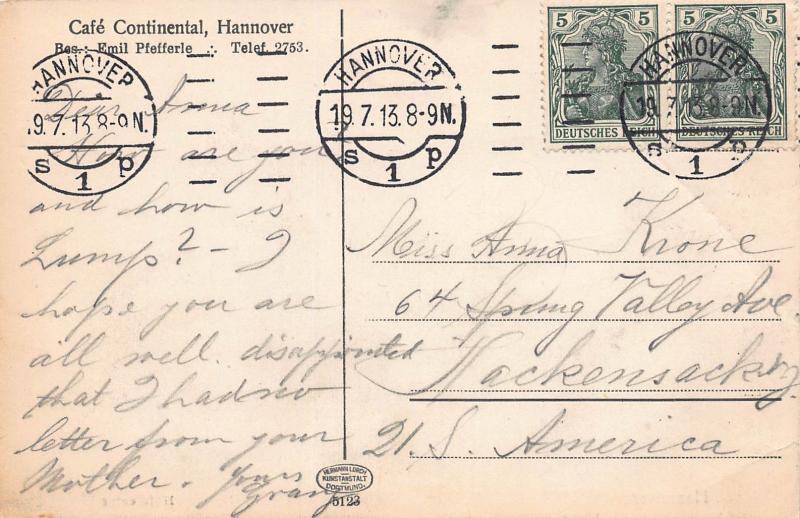 Café Continental, Hannover
Bes.: Emil Pfefferle ∴ Telef. 2753.
5 5
DEUTSCHES REICH DEUTSCHES REICH
HANNOVER
19.7.13.8-9N.
S 1 p
HANNOVER
19.7.13.8-9N.
S 1 p
HANNOVER
19.7.13.8-9N.
S 1 p
Dear Anna
How are you
and how is
Lump? – I
hope you are
all well. disappointed
that I had no
letter from your
Mother. Yours
Miss Anna Krone
64 Spring Valley Ave.
Hackensack
U. S. America
HERMANN LORCH
KUNSTANSTALT
DORTMUND.
5123